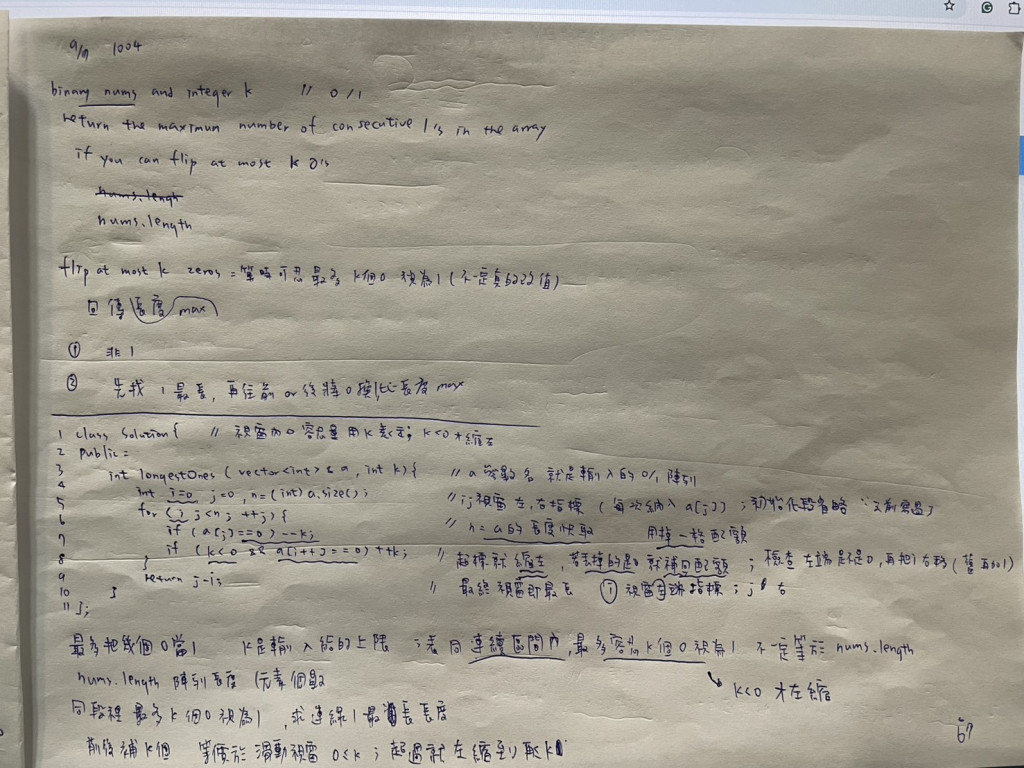 9/17 1004
binary nums and integer k // 0/1
return the maximun number of consecutive 1's in the array
if you can flip at most k 0's
nums.length
flip at most k zeros = 等時可忍最多 k個0 視為1 (不一定真的改值)
回傳長度 max
① 非1
② 先找 1 最長, 再往前 or 後將 0 換1比長度 max
1 class Solution{ // 視窗內0容忍量用k表示; k<0才縮左
2 public:
3 int longestOnes (vector<int> & a, int k){ // a 參數名 就是輸入的 0/1 陣列
4 int i=0, j=0, n=(int)a.size(); // i j 視窗左,右指標 (每次納入 a[j]) ; 初始化段省略 ∵之前寫過了
5 for (; j<n; ++j){ // n = a的長度快取 用掉一格配額
6 if (a[j]==0) --k;
7 if (k<0 && a[i++]==0) ++k; // 超標就縮左, 若丟掉的是0就補回配額 ; 檢查左端是不是0,再把i右移
8 }
9 return j-i; // 最終視窗即最長 ⓘ 視窗左端指標 ; j 右
10 }
11 };
最多把幾個0當1 k是輸入給的上限 ;表同連續區間內,最多容忍k個0視為1 不一定等於 nums.length
nums.length 陣列長度 (元素個數
k<0 才左縮
同段裡最多k個0視為1 , 求連續1最長長度
前後補k個 等價於滑動視窗 0≤k ; 超過就左縮到
67